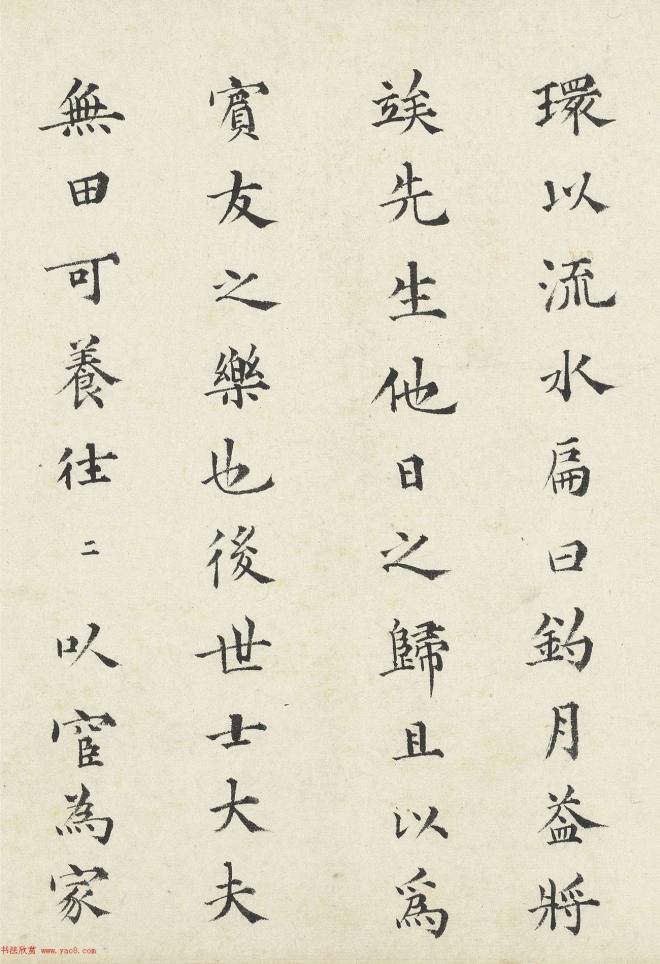 環以流水扁曰釣月葢將
竢先生他日之歸且以爲
賔友之樂也後世士大夫
無田可養徃〻以宦為家
书法欣赏 www.yac8.com